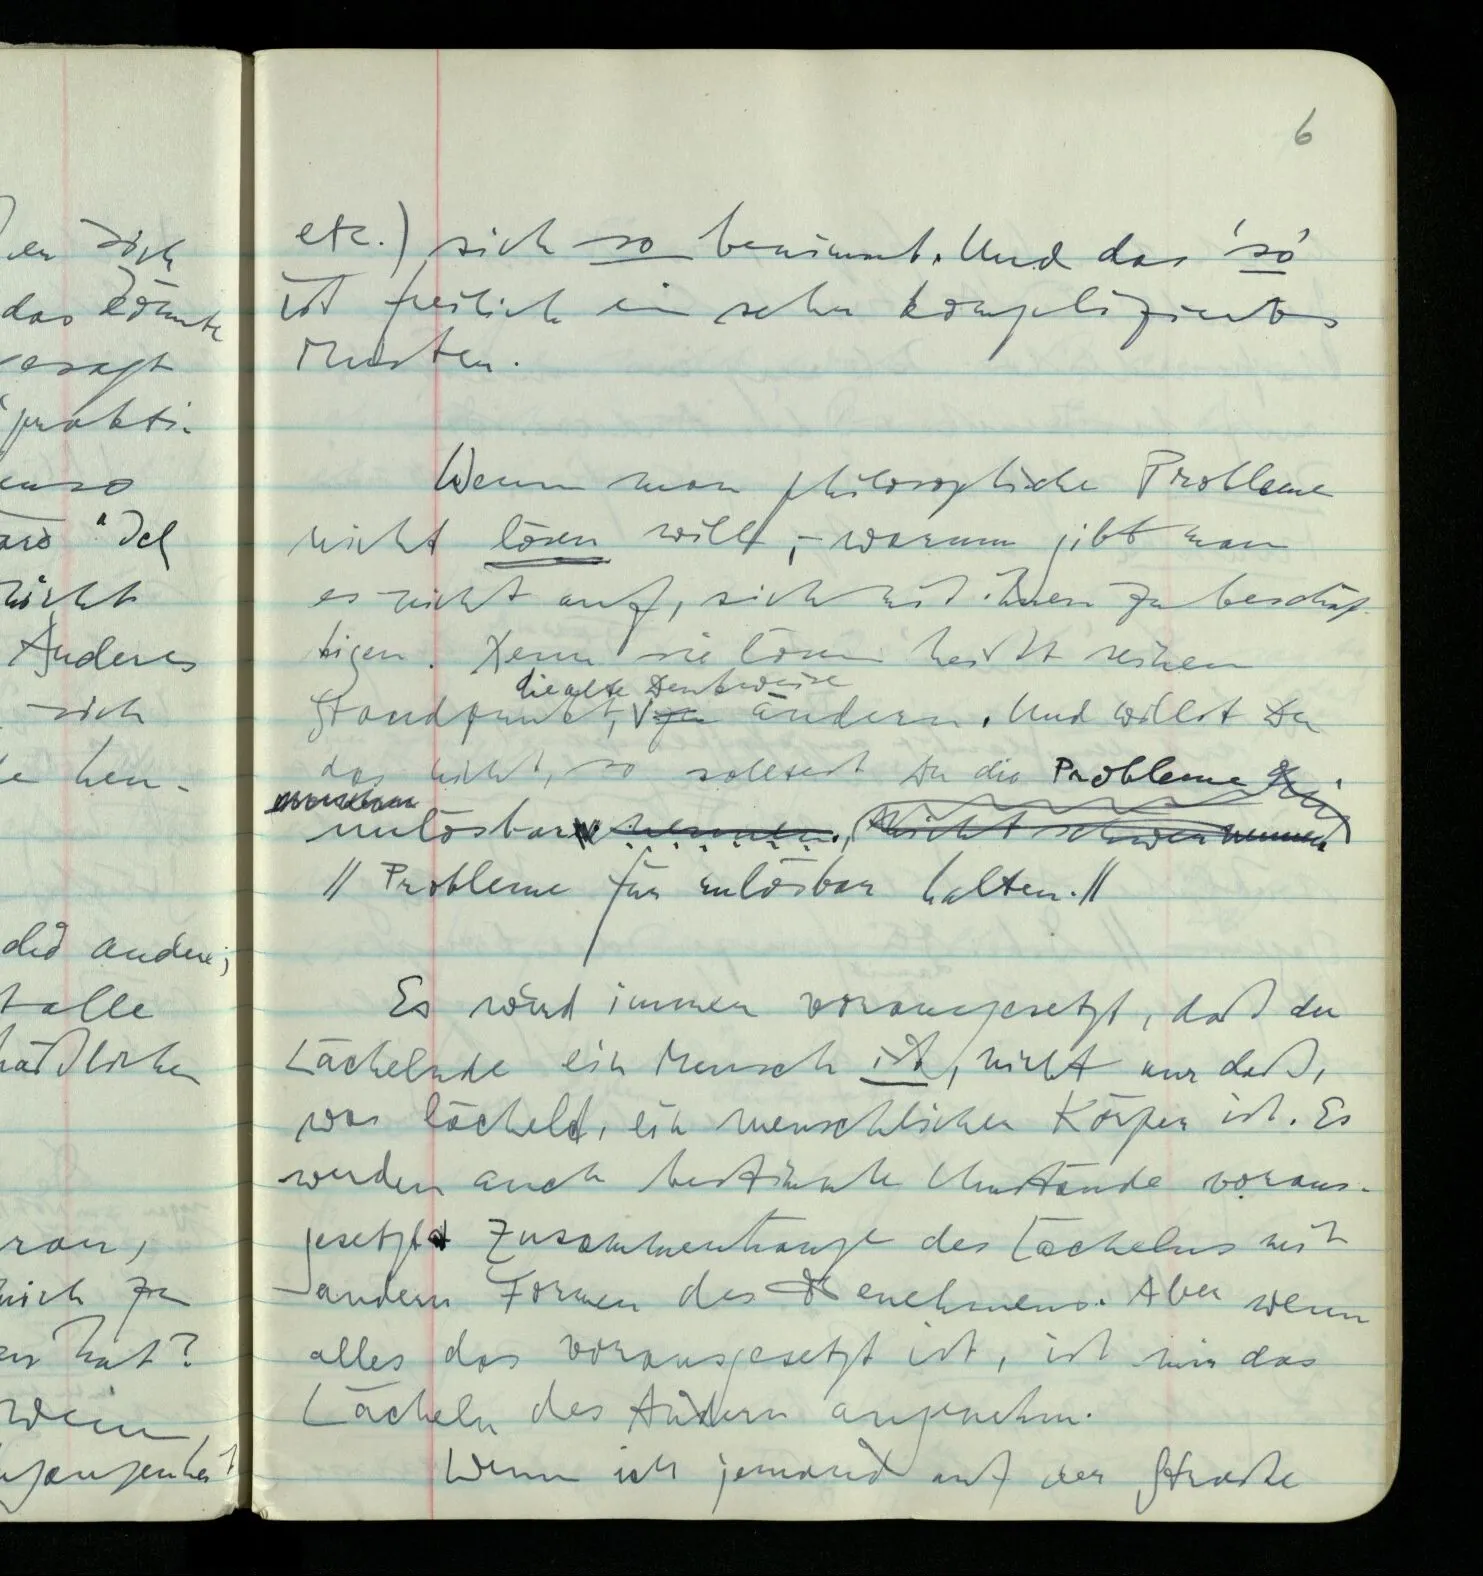 er sich
das könnte
gesagt
"prakti-
"Ich
nicht
Anderes
sich
die andere;
alle
häßlichen
ran,
mich zu
hat?
wenn
6
etc.) sich so benimmt. Und das 'so'
ist freilich ein sehr kompliziertes
Muster.
Wenn man philosophische Probleme
nicht lösen will, – warum gibt man
es nicht auf, sich mit ihnen zu beschäf-
tigen. Denn sie lösen heißt seinen
die alte Denkweise
Standpunkt, ändern. Und willst Du
das nicht, so solltest Du die Probleme für
unlösbar nennen. (Nicht schwer nennen)
// Probleme für unlösbar halten. //
Es wird immer vorausgesetzt, daß der
Lächelnde ein Mensch ist, nicht nur daß,
was lächelt, ein menschlicher Körper ist. Es
werden auch bestimmte Umstände voraus-
gesetzt Zusammenhänge des Lächelns mit
andern Formen des Benehmens. Aber wenn
alles das vorausgesetzt ist, ist mir das
Lächeln des Andern angenehm.
Wenn ich jemand auf der Straße